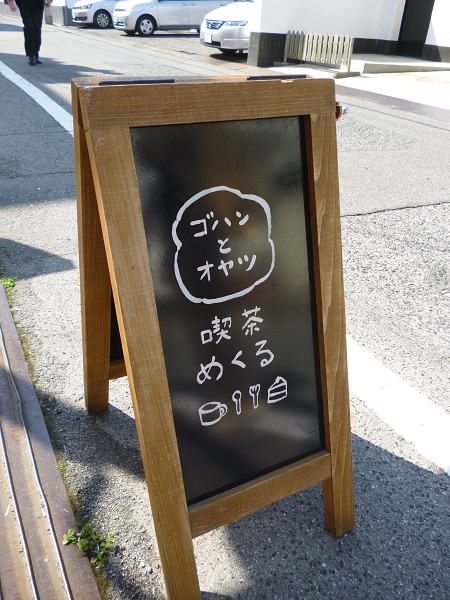 ゴハン
と
オヤツ
喫茶
めくる